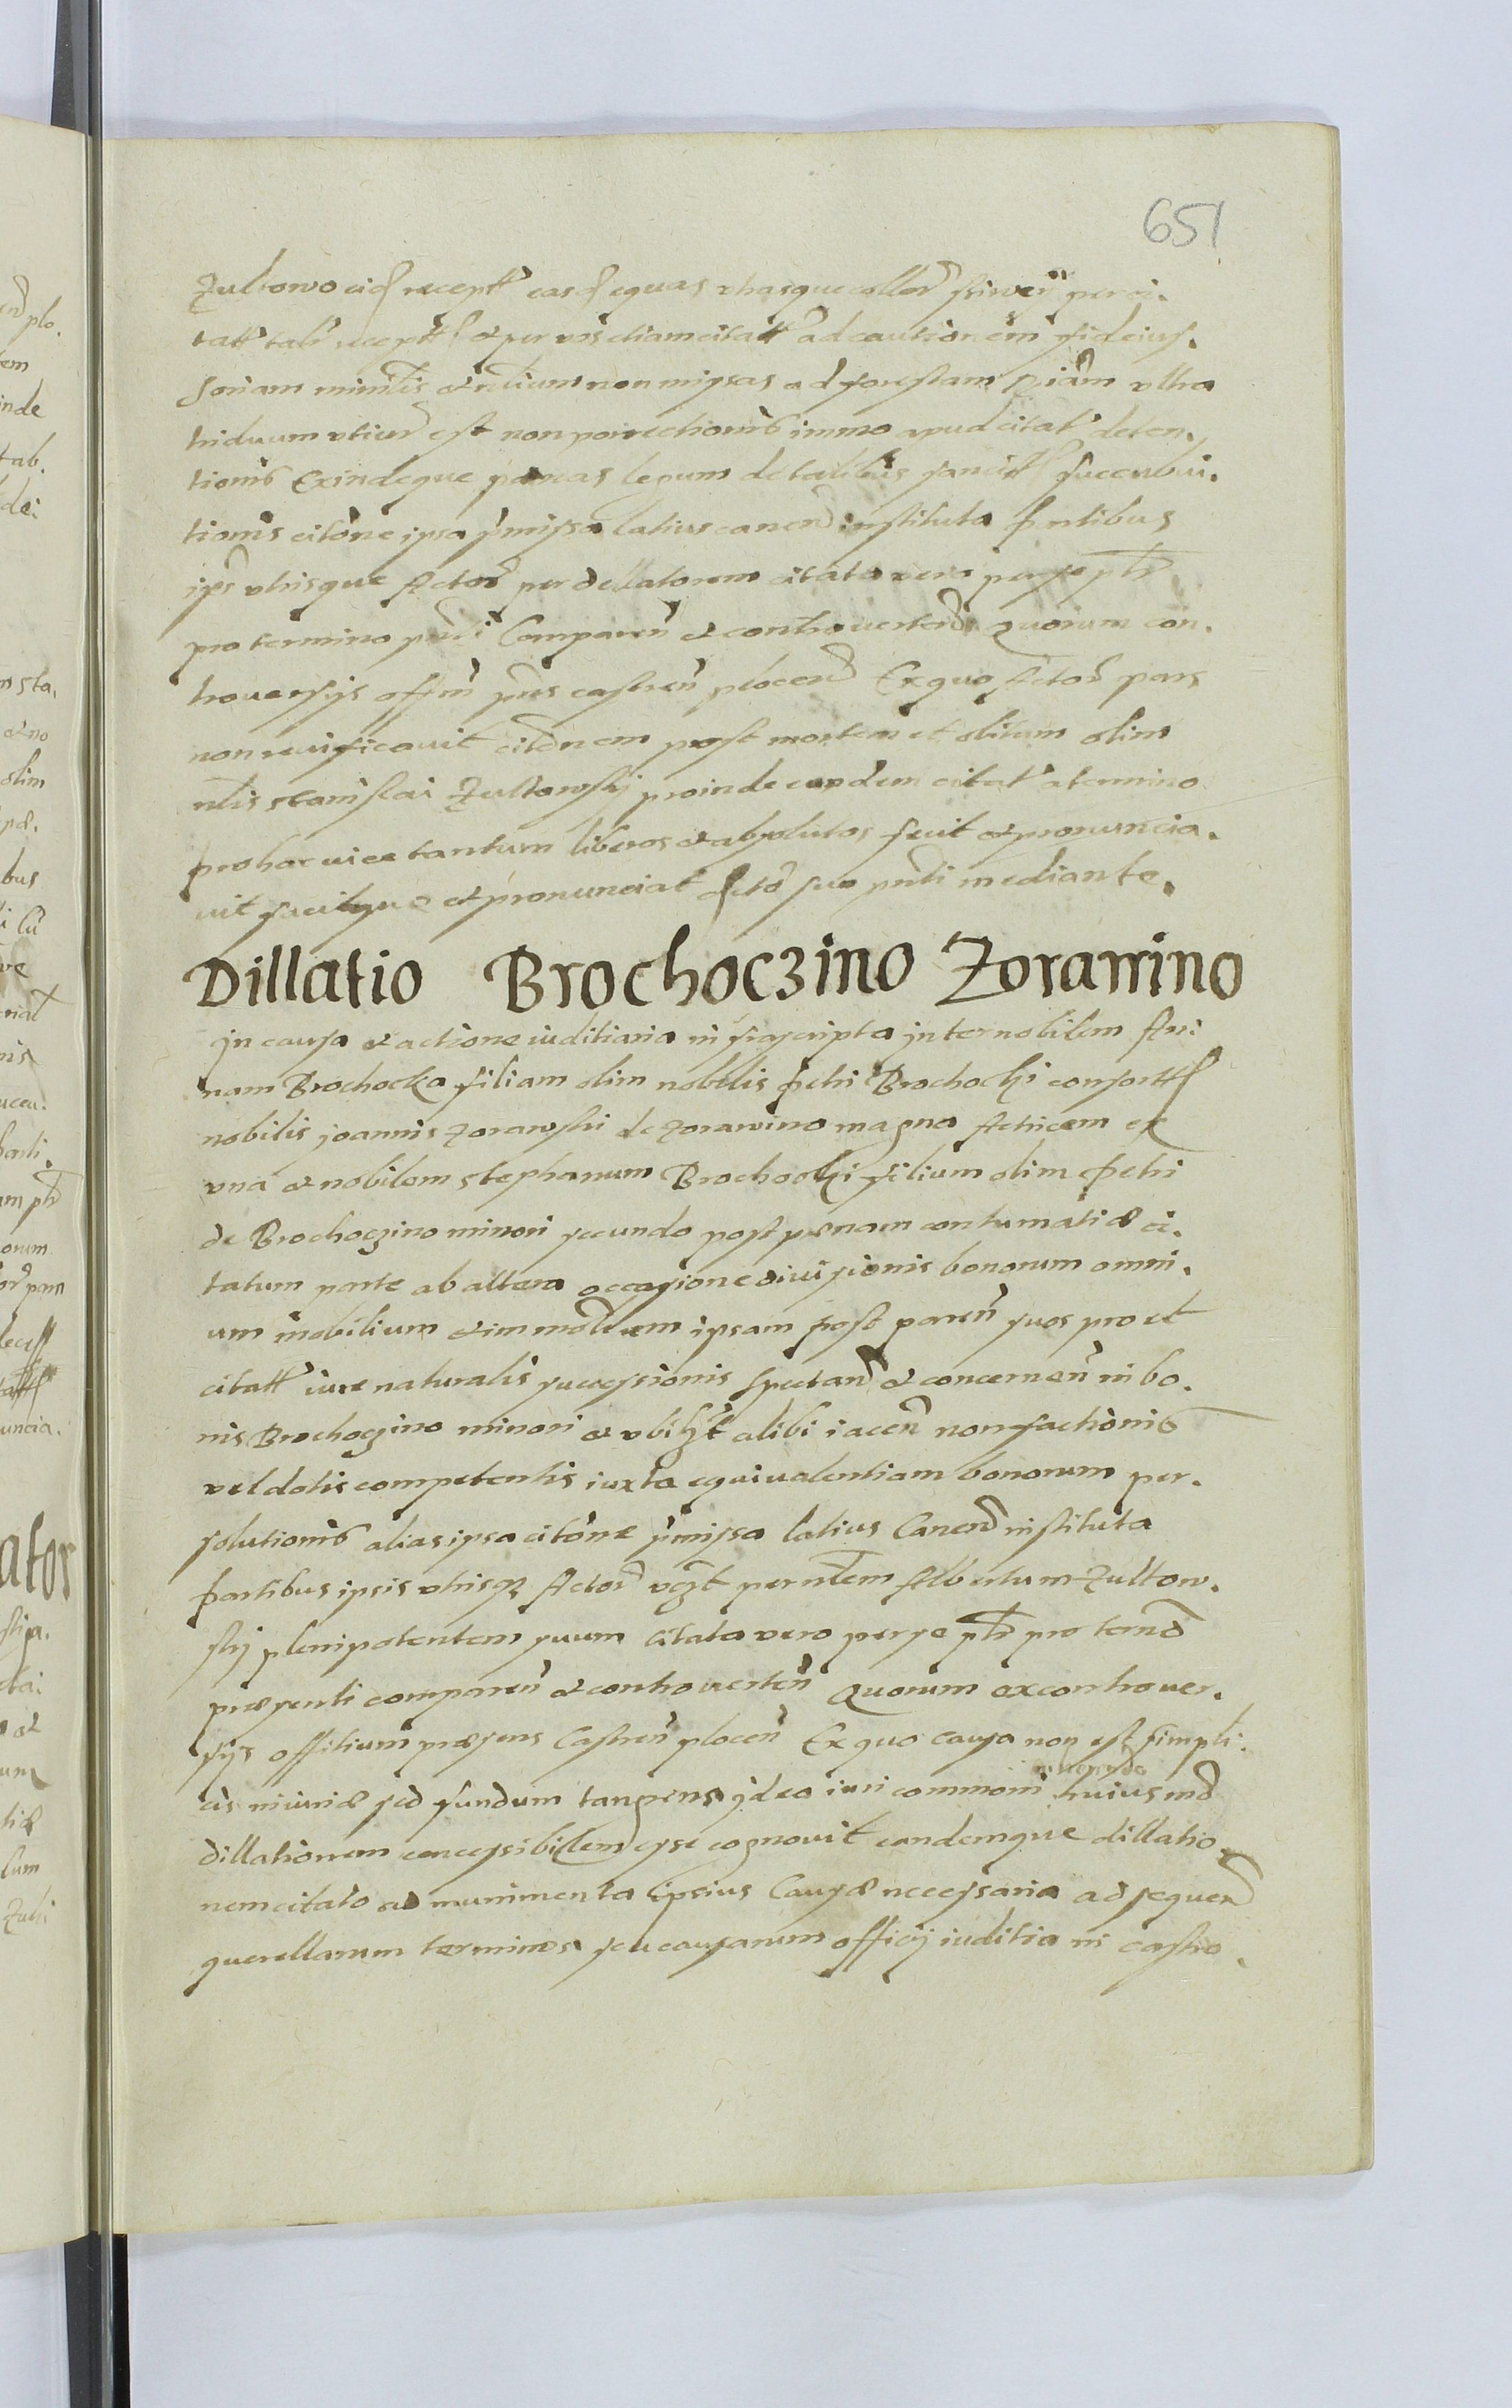 651
Zultowo eid recept easd equas vtrasque coller per ci.
tatt tali recept et per vos etiam citatt ad cautionem fideius.
soriam minitlis et ntium non missas ad forestam Ziam vltra
triduum vti iur est non porrectionis immo apud citat deten.
tionis Exindeque pœnas legum de talibus sancitt succubui.
tionis citone ipsa pmissa latius canen instituta Partibus
ips vtrisque Actor per dellatorem citata vero per se pth
pro termino pnti Comparen et controuerten Quorum con.
trouersijs offm pns castren plocen Ex quo Actor pars
non reuificauit citonem post mortem et obitum olim
nlis Stanislai Zultowskj proinde eundem citat a termino
pro hac uice tantum liberos et absolutos fecit et pronuncia.
uit facitque et pronunciat Dcto suo pnti mediante.
Dillatio Brochoczino Zorawino
In causa et actione iuditiaria infrascripta inter nobilem An.
nam Brochocka filiam olim nobilis Petri Brochoczki consortt
nobilis Joannis Zorawski de Zorawino magno Actricem ex
vna et nobilem Stephanum Brochoczki filium olim Petri
de Brochoczino minori secundo post pœnam contumatiæ ci.
tatum parte ab altera occasione diuisionis bonorum omni.
um mobilium et immobilium ipsam post paren suos pro et
citatt iure naturalis successionis spectan et concernen in bo.
nis Brochoczino minori et vbilzt alibi iacen non factionis
vel dotis competentis iuxta equiualentiam bonorum per.
solutionis alias ipsa citone pmissa latius Canen instituta
Partibus ipsis vtrisq Actor vczt per nlem Albertum Zultow.
skj plenipotentem suum citata vero per se pth pro termo
præsenti comparen et controuerten Quorum ex controuer.
sijs offitium præsens Castren plocen Ex quo causa non est simpli.
cis iniuriæ sed fundum tangens ideo iuri commoni inherendo huiusmd
dillationem concessibilem esse cognouit eandemque dillatio.
nem citato ad munimenta ipsius Causæ necessaria ad sequen
querellarum terminos seu causarum officij iuditia in castro.